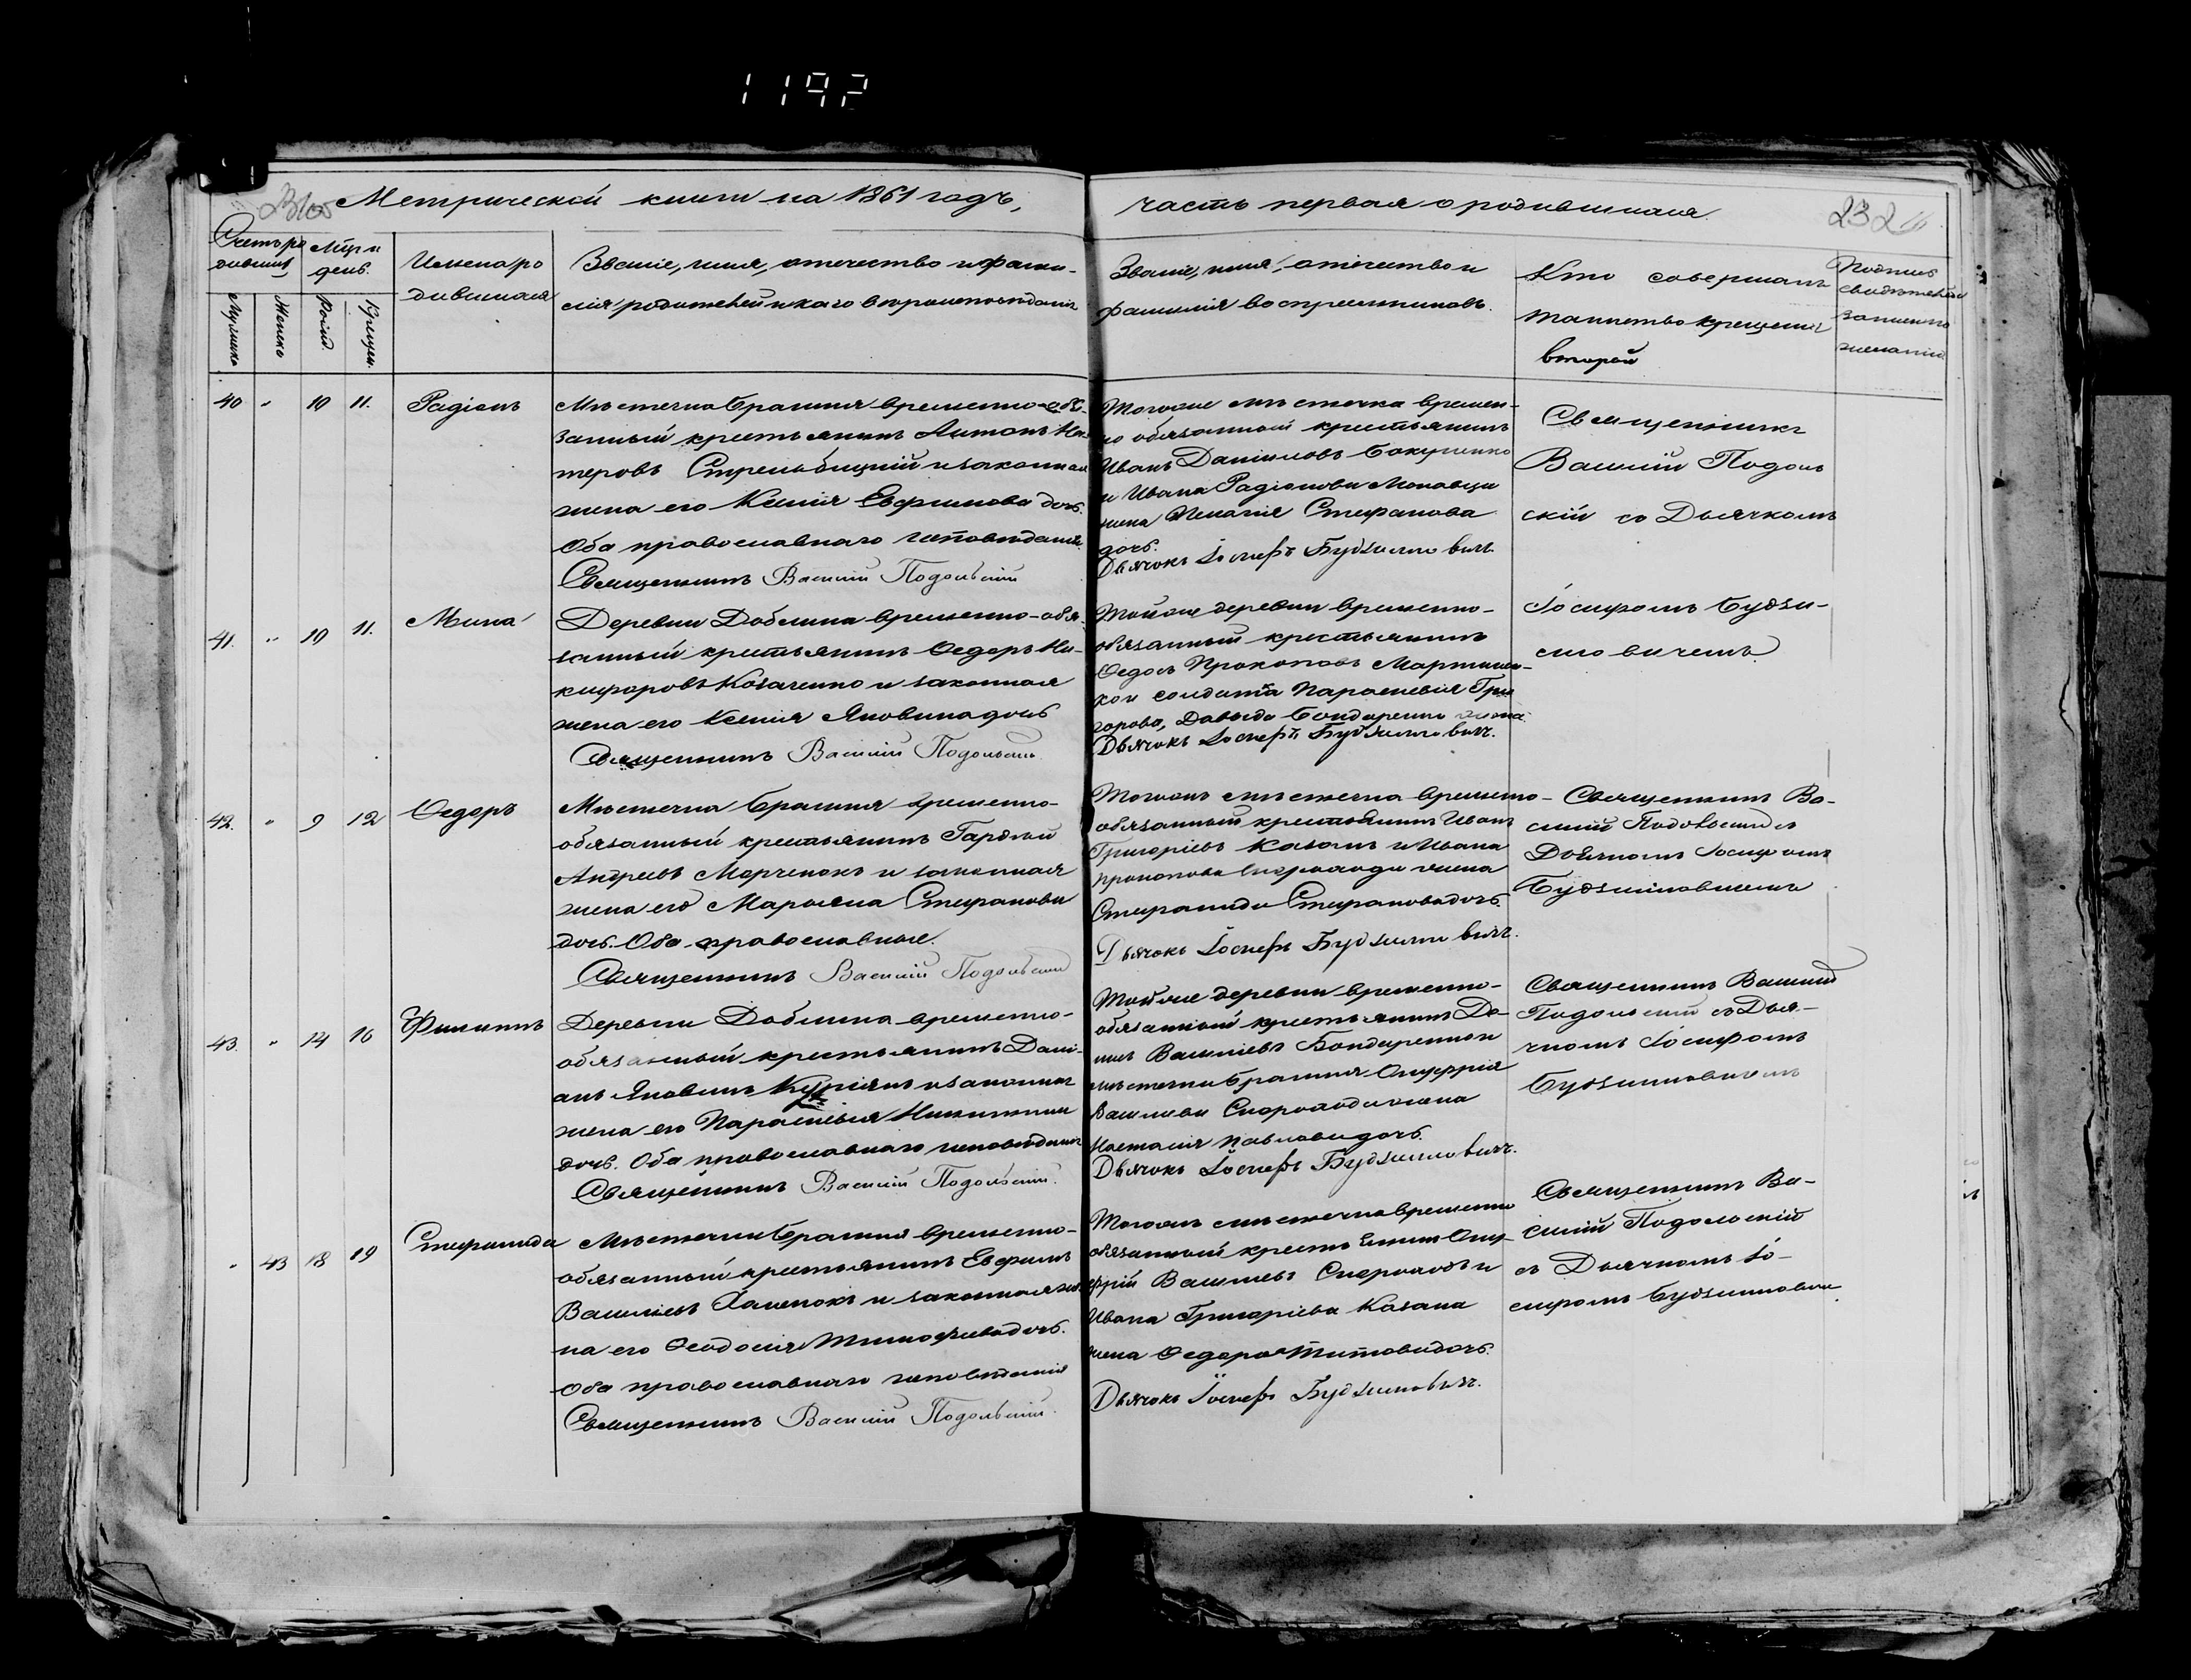 1192
Метрической книги на 1861 годъ,
часть первая о родившихся.
232
Счетъ ро
дивших
Мц и
день.
Мужеска
Женска
Рожд.
Крещен.
Имена ро
дившихся
Званіе, имя, отечество и фами-
лія родителей и какого вероисповеданія
Званіе, имя, отечество и
фамилія воспріемниковъ.
Кто совершалъ
таинство крещенія
второй
Подпись
свидетелей
записи по
желанію
40 " 10 11.
Радіонъ
Местечка Брагиня временно-обя-
занный крестьянинъ Антонъ Не-
теровъ Стрельбицкій и законная
жена его Ксенія Евфимова дочь.
Оба православнаго исповеданія.
Священникъ Василій Подольскій
Тогоже местечка времен-
но обязанный крестьянинъ
Иванъ Даніиловъ Бакуменко
и Ивана Радіонова
жена Пелагія Стефанова
дочь.
Дьячокъ Іосифъ Будзиллович.
Священникъ
Василій Подоль
скій со Дьячкомъ
Іосифомъ Будзи-
ловичемъ.
41. " 10 11.
Мина
Деревни Доблина временно-обя-
занный крестьянинъ Ѳедоръ Ни-
кифоровъ Козаченко и законная
жена его Ксенія Яковина дочь
Священникъ Василій Подольскій.
Тойже деревни временно-
обязанный крестьянинъ
Ѳедосъ Прокоповъ
солдата Параскевія Гри
горова, Давида Бондаренко жена.
Дьячокъ Іосифъ Будзиллович.
42. " 9 12
Ѳедоръ
Местечка Брагиня временно-
обязанный крестьянинъ Гардей
Андреевъ Марченокъ и законная
жена его Марьяна Стефанова
дочь. Оба православные.
Священникъ Василій Подольскій
Тогожъ местечка временно-
обязанный крестьянинъ Иванъ
Григоріевъ Казакъ и Ивана
Прокопова Скорохода жена
Степанида Стефанова дочь.
Дьячокъ Іосифъ Будзиллович.
Священникъ Ва-
силій Подольскій съ
Дьячкомъ Іосифомъ
Будзилловичемъ
43. " 14 16
Филипъ
Деревни Доблина временно-
обязанный крестьянинъ Дані-
илъ Яковинъ и законная
жена его Параскевія Никитина
дочь. Оба православнаго исповеданія
Священникъ Василій Подольскій.
Тойже деревни временно-
обязанный крестьянинъ Да-
Василіевъ Бондаренко и
местечка Брагиня Онуфрія
Василіева Скорохода жена
Настасія Павлова дочь.
Дьячокъ Іосифъ Будзиллович.
Священникъ Василій
Подольскій съ Дья-
чкомъ Іосифомъ
Будзилловичемъ
" 43 18 19
Степанида
Местечка Брагиня временно-
обязанный крестьянинъ Евфимъ
Василіевъ Хаменокъ и законная же-
на его Ѳеодосія Тимофеева дочь.
Оба православнаго исповеданія
Священникъ Василій Подольскій.
Тогожъ местечка временно
обязанный крестьянинъ Ону-
фрій Василіевъ Скороходъ и
Ивана Григоріева Казака
жена Ѳедора Титова дочь.
Дьячокъ Іосифъ Будзиллович.
Священникъ Ва-
силій Подольскій
съ Дьячкомъ Іо-
сифомъ Будзилович.